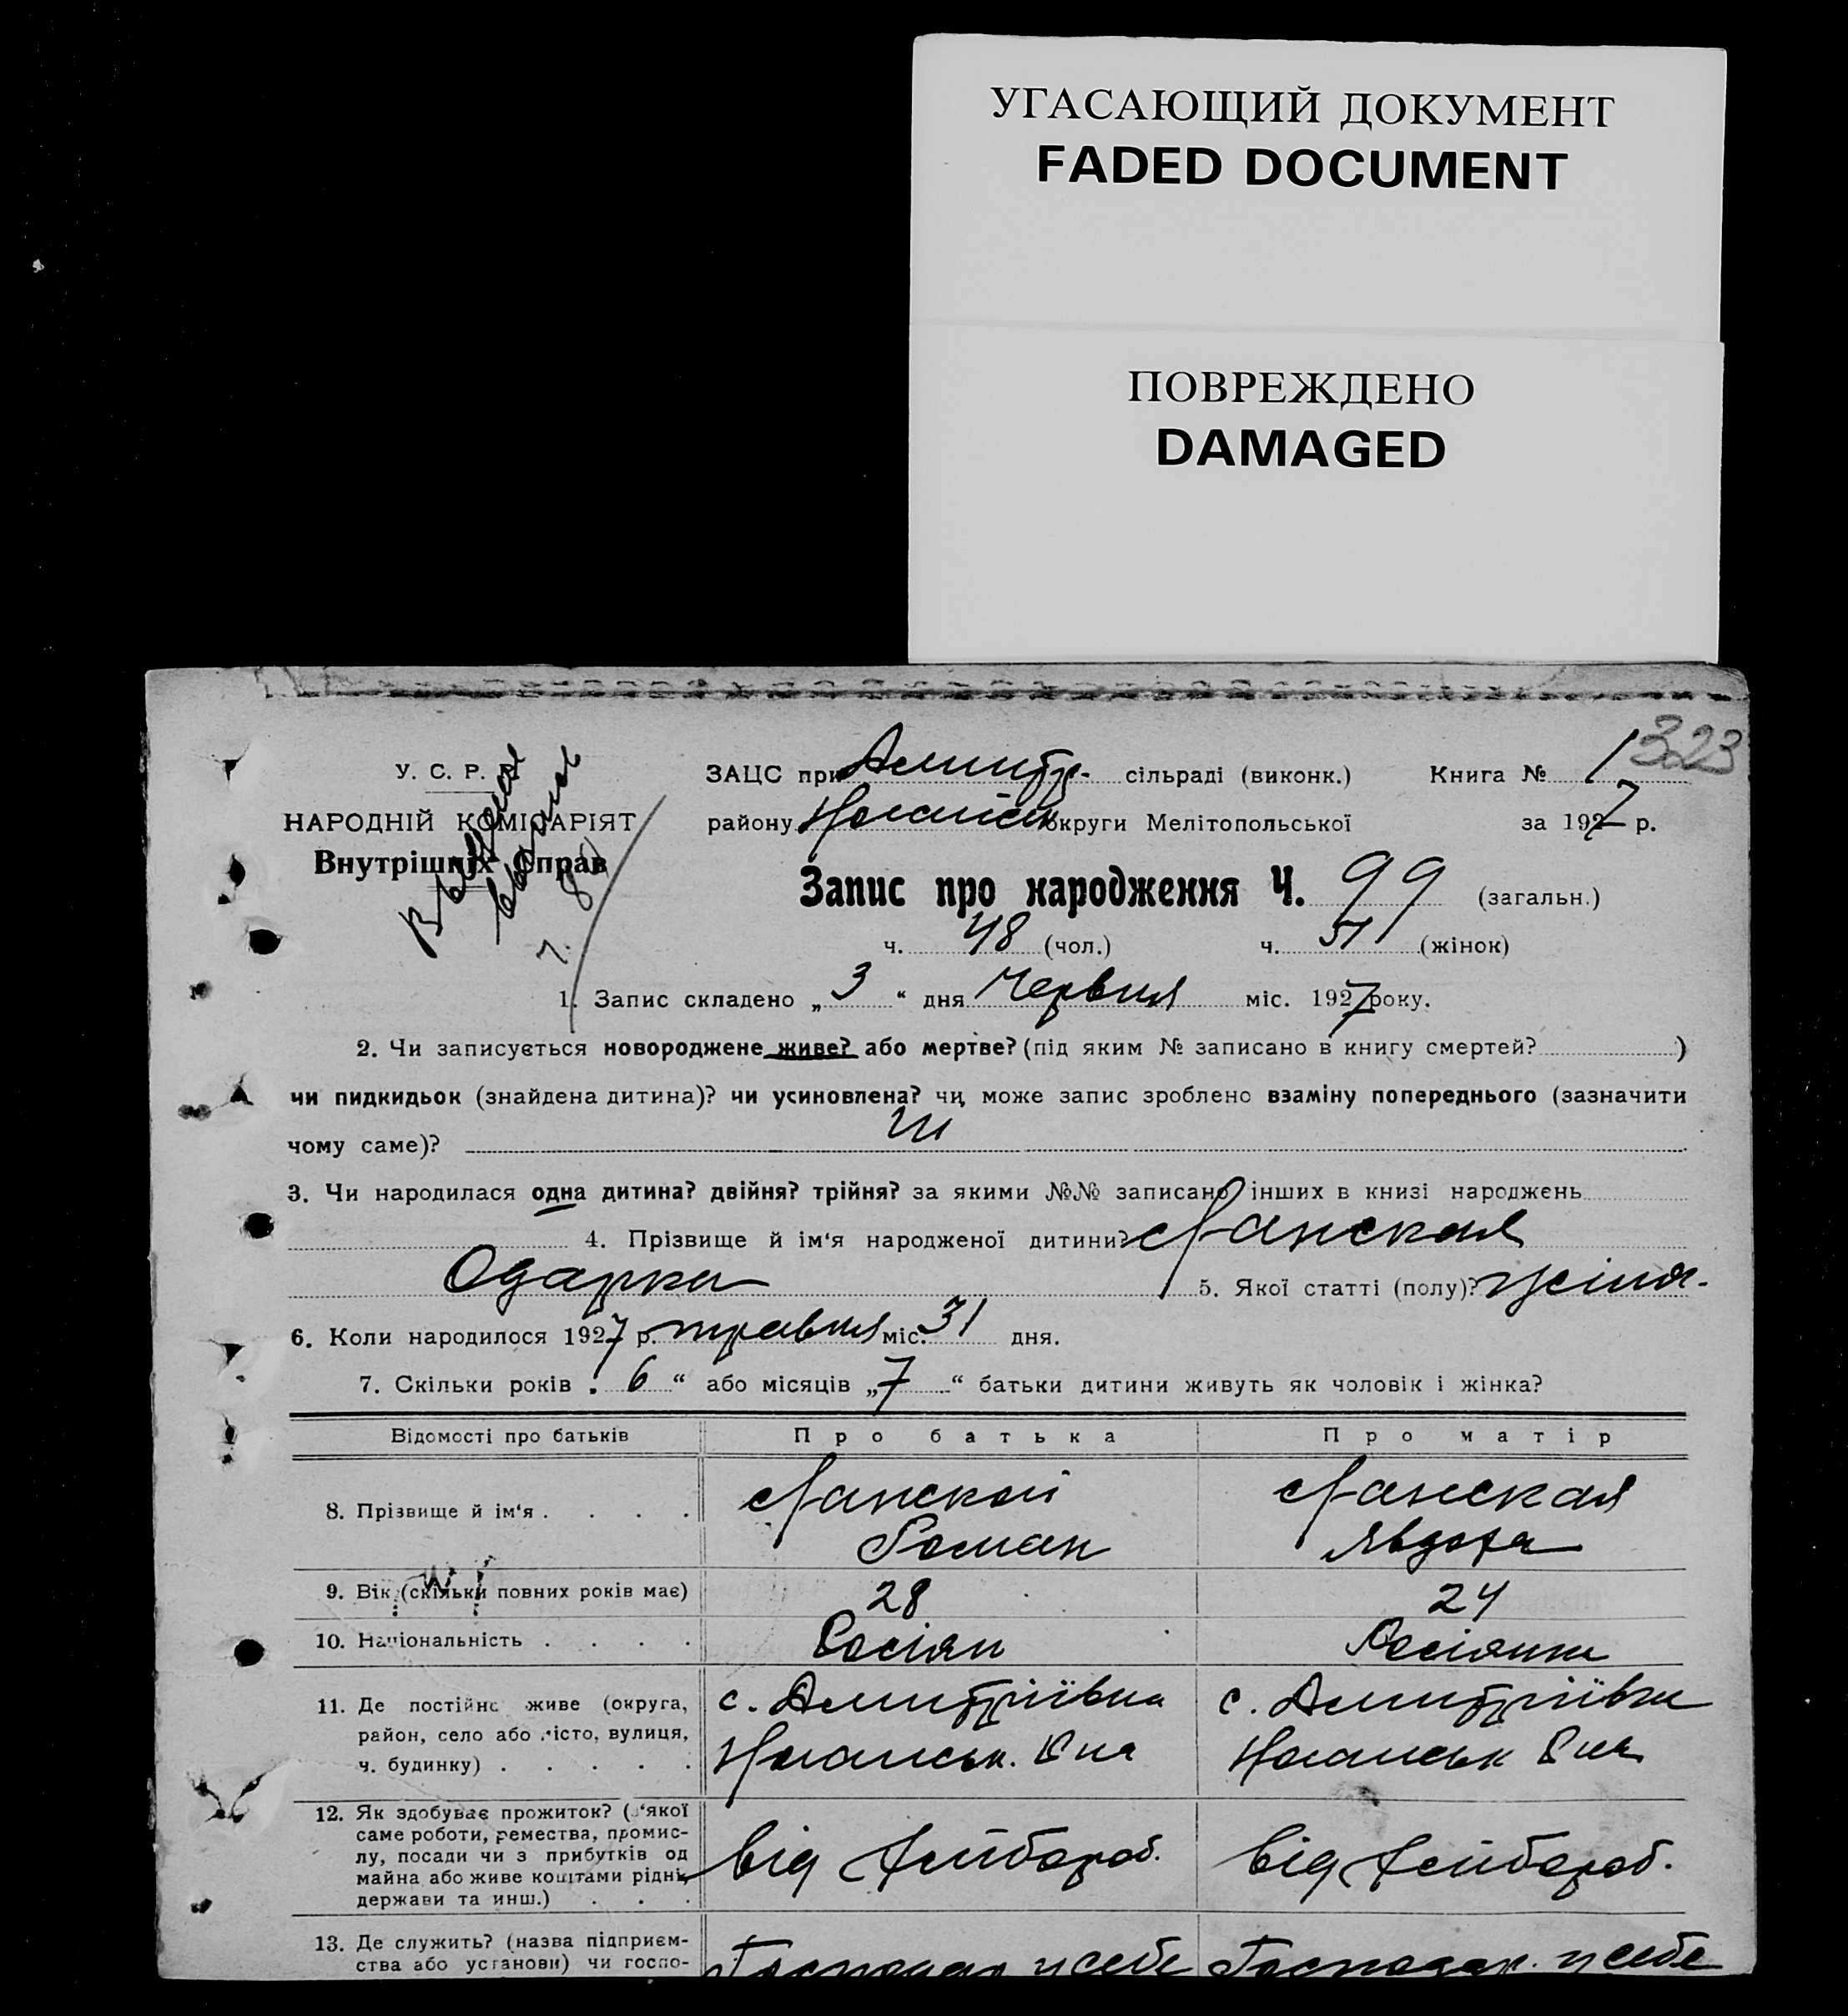 УГАСАЮЩИЙ ДОКУМЕНТ
FADED DOCUMENT
ПОВРЕЖДЕНО
DAMAGED
323
У. С. Р. Р.
НАРОДНІЙ КОМІСАРІЯТ
Внутрішніх Справ
ЗАЦС при Дмитр. сільраді (виконк.) Книга № 1
району Ногайськ округи Мелітопольської за 1927 р.
Запис про народження Ч. 99 (загальн.)
ч. 48 (чол.) ч. 51 (жінок)
1. Запис складено „3“ дня Червня міс. 1927 року.
2. Чи записується новороджене живе? або мертве? (під яким № записано в книгу смертей? )
чи пидкидьок (знайдена дитина)? чи усиновлена? чи може запис зроблено взаміну попереднього (зазначити
чому саме)?
3. Чи народилася одна дитина? двійня? трійня? за якими №№ записано інших в книзі народжень
4. Прізвище й ім'я народженої дитини? Ланская
Одарка 5. Якої статті (полу)? жіноч.
6. Коли народилося 1927 р. травня міс. 31 дня.
7. Скільки років „6“ або місяців „7“ батьки дитини живуть як чоловік і жінка?
Відомості про батьків Про батька Про матір
8. Прізвище й ім'я . . . . Ланской Ланская
Роман Явдоха
9. Вік (скільки повних років має) 28 24
10. Національність . . . . Росіян Росіянка
11. Де постійно живе (округа, с. Дмитріївка с. Дмитріївка
район, село або місто, вулиця,
ч. будинку) . . . . . Ногайськ. Р-на Ногайськ Р-на
12. Як здобуває прожиток? (з якої
саме роботи, ремества, промис-
лу, посади чи з прибутків од від хлібороб. від хлібороб.
майна або живе коштами рідні,
держави та инш.) . . .
13. Де служить? (назва підприєм-
ства або установи) чи госпо- Господар у себе Господар. у себе